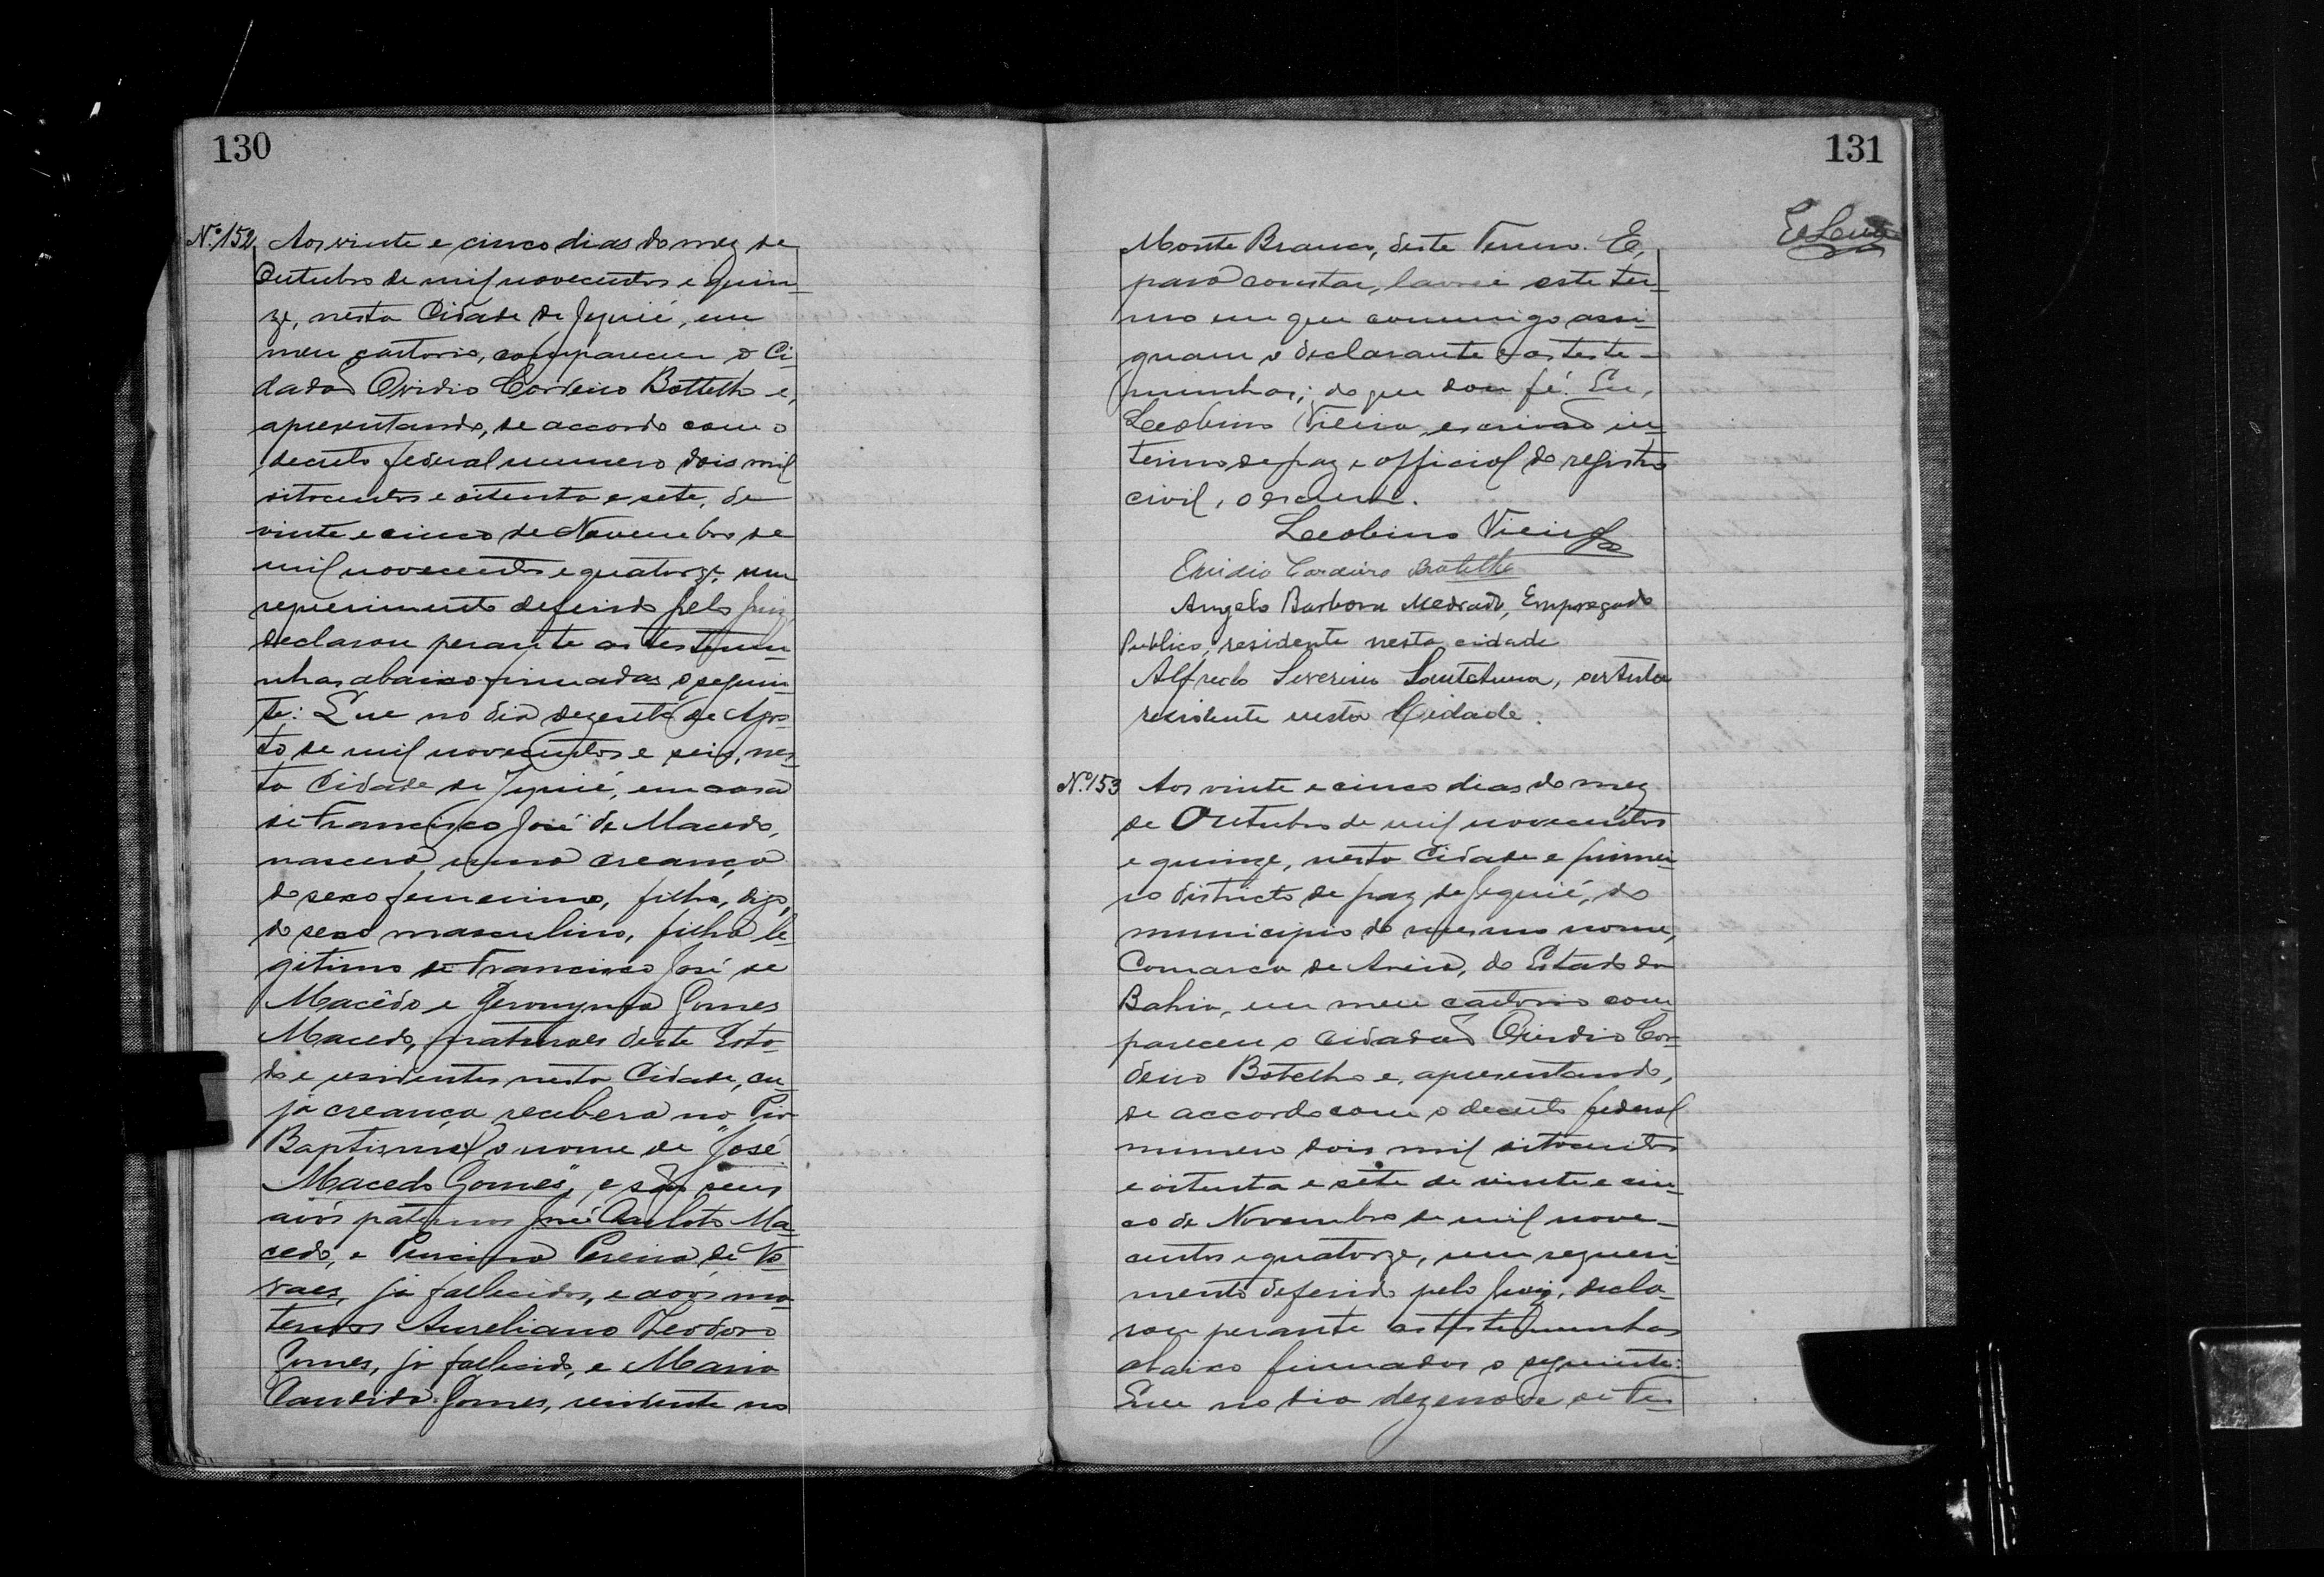 130
Nº 152 Aos vinte e cinco dias do mez de
Outubro de mil novecentos e quin-
ze, nesta Cidade de Jequié, em
meu cartorio, compareceu o Ci-
dadão Ovidio Cordeiro Bottelho e,
apresentando, de accordo com o
decreto federal numero dois mil
oitocentos e oitenta e sete, de
vinte e cinco de Novembro de
mil novecentos e quatorze, um
requerimento deferido pelo Juiz,
declarou perante as testemu-
nhas abaixo firmadas o seguin-
te: Que no dia dezesete de Agos-
to, de mil novecentos e seis, nes-
ta Cidade de Jequié, em casa
de Francisco José de Macedo,
nascera uma creança
do sexo femenino, filha, digo,
do sexo masculino, filho le-
gitimo de Francisco José de
Macêdo e Jeronyma Gomes
Macedo, naturaes deste Esta-
do e residentes nesta Cidade, cu-
ja creança recebera na Pia
Baptismal o nome de "José
Macedo Gomes", e são seus
avós paternos José Carloto Ma-
cedo, e Pereira de No-
vaes, já fallecidos, e avós ma-
ternos Aureliano Theodoro
Gomes, já fallecido, e Maria
Candida Gomes, residente no
131
Monte Branco, deste Termo. E,
para constar, lavrei este ter-
mo em que commigo assi-
gnam o declarante e as teste-
munhas; do que dou fé. Eu,
Leobino Vieira, escrivão in-
terino de paz e official do registro
civil, o escrevi.
Leobino Vieira
Ovidio Cordeiro Botelho
Angelo Barbosa Medrado, Empregado
Publico, residente nesta cidade
Alfredo Severino Sant'Anna, artista
residente nesta Cidade.
Nº 153 Aos vinte e cinco dias do mez
de Outubro de mil novecentos
e quinze, nesta Cidade e primei-
ro districto de paz de Jequié, do
municipio do mesmo nome,
Comarca de Areia, do Estado da
Bahia, em meu cartorio com
pareceu o cidadão Ovidio Cor-
deiro Botelho e, apresentando,
de accordo com o decreto federal
numero dois mil oitocentos
e oitenta e sete de vinte e cin-
co de Novembro de mil nove-
centos e quatorze, um requeri-
mento deferido pelo Juiz, decla-
rou perante as testemunhas
abaixo firmadas o seguinte:
Que no dia dezenove de